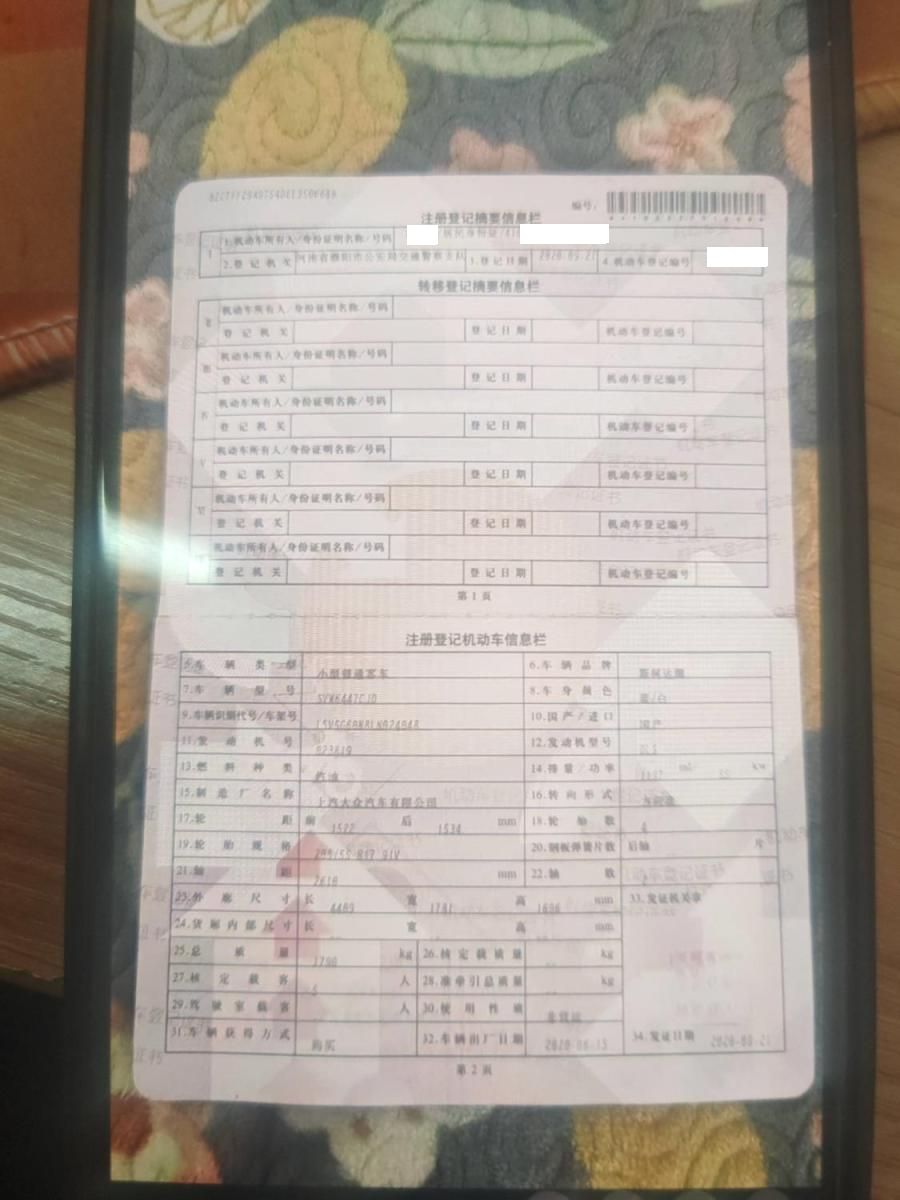 编号:
注册登记摘要信息栏
1.机动车所有人/身份证明名称/号码 居民身份证/
2.登记机关 河南省濮阳市公安局交通警察支队 3.登记日期 2020-09-21 4.机动车登记编号
转移登记摘要信息栏
机动车所有人/身份证明名称/号码
登记机关 登记日期 机动车登记编号
机动车所有人/身份证明名称/号码
登记机关 登记日期 机动车登记编号
机动车所有人/身份证明名称/号码
登记机关 登记日期 机动车登记编号
机动车所有人/身份证明名称/号码
登记机关 登记日期 机动车登记编号
机动车所有人/身份证明名称/号码
登记机关 登记日期 机动车登记编号
机动车所有人/身份证明名称/号码
登记机关 登记日期 机动车登记编号
第 1 页
注册登记机动车信息栏
5.车辆类型 小型普通客车 6.车辆品牌 斯柯达牌
7.车辆型号 8.车身颜色 蓝/白
9.车辆识别代号/车架号 10.国产/进口 国产
11.发动机号 12.发动机型号
13.燃料种类 汽油 14.排量/功率 ml kw
15.制造厂名称 上汽大众汽车有限公司 16.转向形式
17.轮距 前 1522 后 1534 mm 18.轮胎数 4
19.轮胎规格 205/55 R17 91V 20.钢板弹簧片数 后轴 片
21.轴距 2610 mm 22.轴数
23.外廓尺寸 长 4409 宽 1781 高 1606 mm 33.发证机关章
24.货厢内部尺寸 长 宽 高 mm
25.总质量 1790 kg 26.核定载质量 kg
27.核定载客 5 人 28.准牵引总质量 kg
29.驾驶室载客 人 30.使用性质 非营运
31.车辆获得方式 购买 32.车辆出厂日期 2020-06-15 34.发证日期 2020-09-21
第 2 页